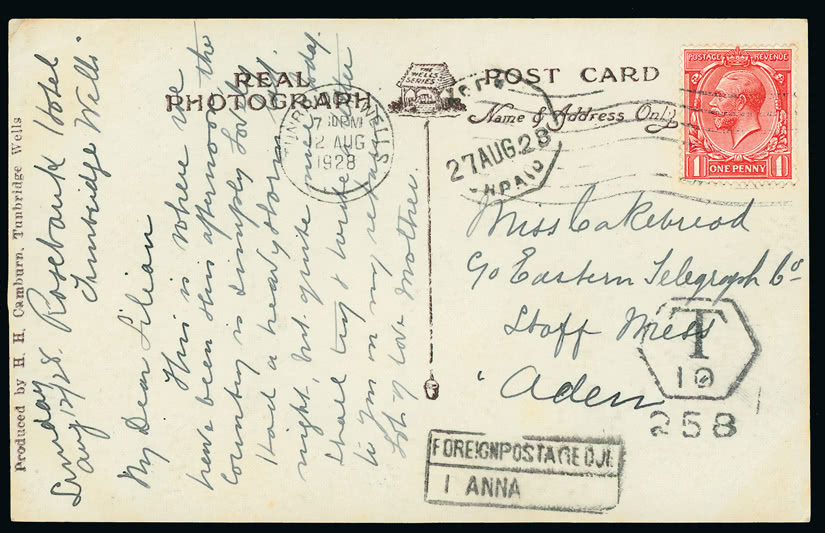 Produced by H. H. Camburn, Tunbridge Wells
REAL
PHOTOGRAPH
THE
WELLS
SERIES
POST CARD
Name & Address Only
Sunday Rosebank Hotel
Aug 12/28. Tunbridge Wells.
My Dear Lilian
This is where we
have been this afternoon the
country is simply lovely
Had a heavy storm
night, but quite nice today.
Shall try & write
to you on my return
Lots of love Mother.
TUNBRIDGE WELLS
7 PM
12 AUG
1928
27 AUG. 28
UNPAID
POSTAGE REVENUE
1 ONE PENNY 1
Miss Cakebread
c/o Eastern Telegraph Co
Staff Mess
Aden
T
10
258
FOREIGN POSTAGE DUE
1 ANNA